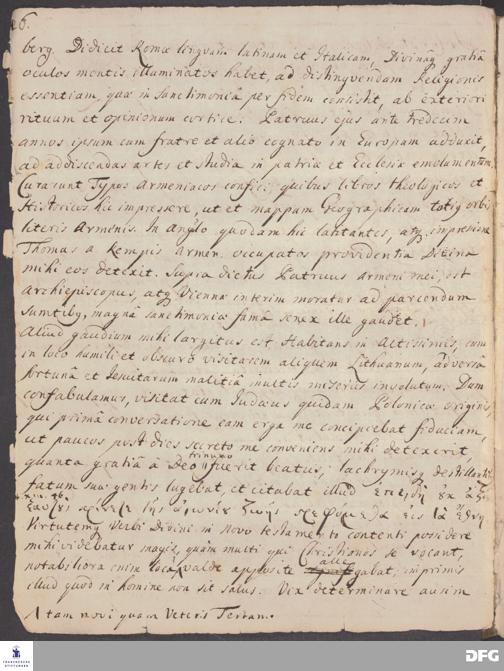 26.
berg. Didicit Romæ lingvam latinam et Italicam, Divinaq gratiâ
oculos mentis illuminatos habet, ad distingvendam Religionis
essentiam, quæ in sanctimoniâ per fidem consistit, ab exteriori
rituum et opinionum cortice. Patruus ejus ante tredecim
annos ipsum cum fratre et alio cognato in Europam adduxit,
ad addiscendas artes et studia in patriæ et Ecclesiæ emolumentum.
Curarunt Typos Armeniacos confici, quibus libros theologicos et
Historicos hic impressere, ut et mappam Geographicam totiq orbis
literis Armenis. In Angulo quodam hic latitantes, atq impressione
Thomæ a Kempis Armen. occupatos providentia Divina
mihi eos detexit. Supra dictus Patruus Armeni mei, est
Archiepiscopus, atq Viennæ interim moratur ad parcendum
sumtibq, magnâ sanctimoniæ famâ senex ille gaudet.
Aliud gaudium mihi largitus est Habitans in Altissimis, cum
in loco humili et obscuro visitarem aliquem Lithuanum, adversâ
fortunâ et Jesuitarum malitiâ multis miseriis involutum. Dum
confabulamur, visitat eum Judæus quidam Polonicæ originis,
qui primâ conversatione eam erga me concipiebat fiduciam,
ut paucos post dies secreto me conveniens mihi detexerit
quanta gratiâ a Deo trinuno fuerit beatus; lachrymisq destillantib
fatum suæ gentis lugebat, et citabat illud ἐπειδὴ οὐκ ἀξί
XIII. 46.
τῆς αἰωνίου ζωῆς στρεφόμεθα εἰς τὰ ἔθνη
Virtutemq Verbi Divini in Novo testamento contenti possidere
mihi videbatur magis, quàm multi qui Christianos se vocant,
notabiliora enim loca valde apposite allegabat, imprimis
illud quod in homine non sit salus. Vix determinare ausim
tam novi quam Veteris Testam.
FRANCKESCHE STIFTUNGEN
DFG